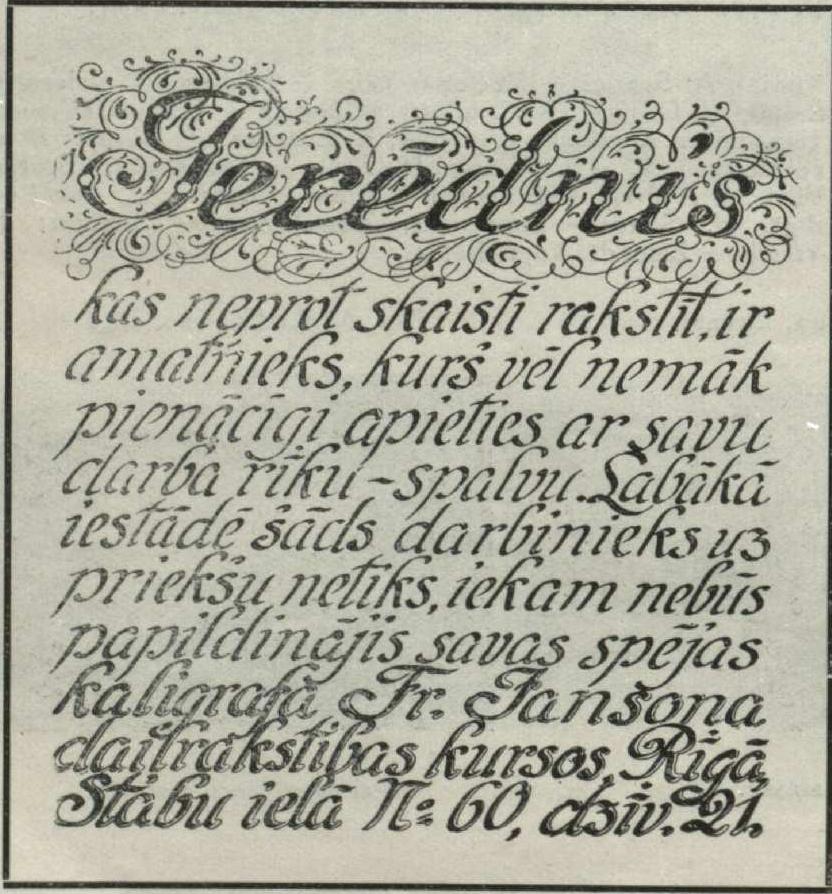 Ierēdnis
kas neprot skaisti rakstīt, ir
amatnieks, kurš vēl nemāk
pienācīgi apieties ar savu
darba rīku – spalvu. Labākā
iestādē šāds darbinieks uz
priekšu netiks, iekam nebūs
papildinājis savas spējas
kaligrafa Fr. Jansona
daiļrakstības kursos, Rīgā,
Stabu ielā № 60, dzīv. 21.